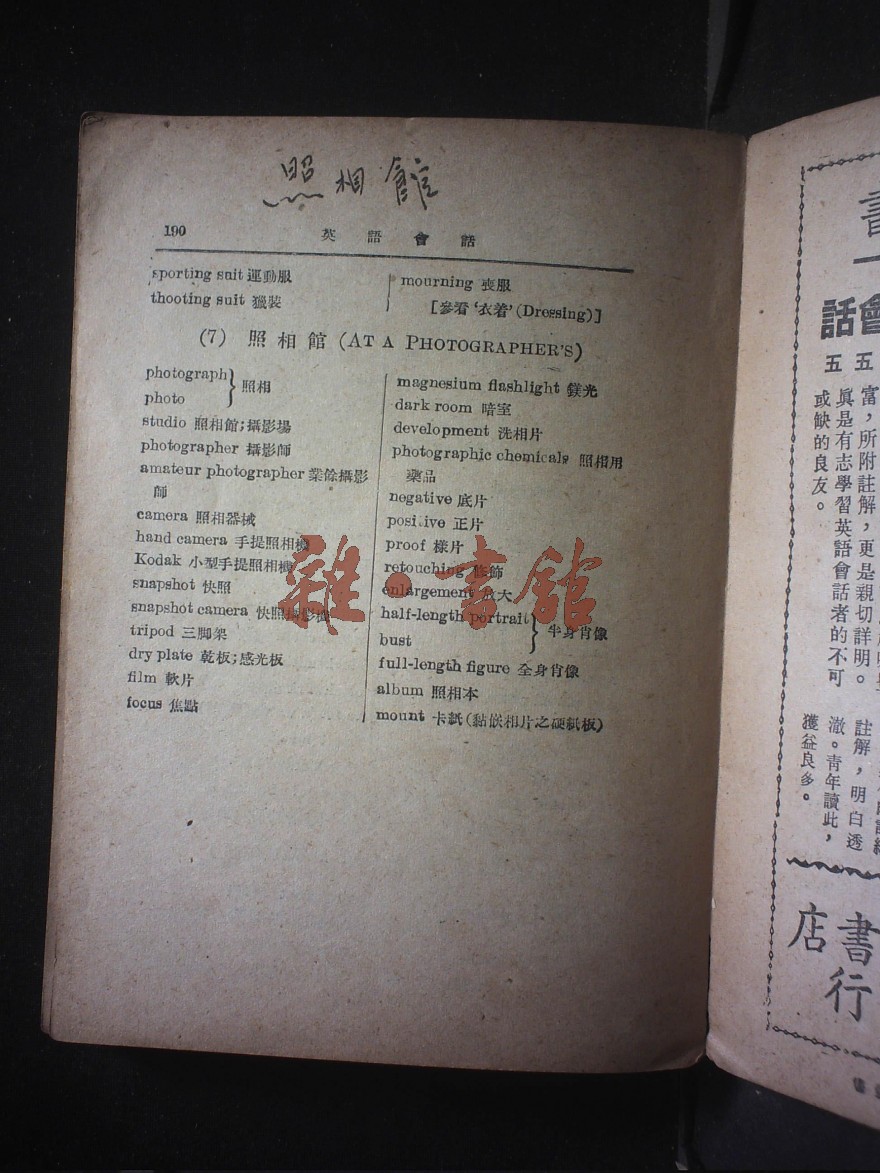 照相館
190
英語會話
sporting suit 運動服
thooting suit 獵裝
mourning 喪服
[參看‘衣着’(Dressing)]
(7) 照相館 (AT A PHOTOGRAPHER'S)
photograph
photo
} 照相
studio 照相館;攝影場
photographer 攝影師
amateur photographer 業餘攝影
師
camera 照相器械
hand camera 手提照相機
Kodak 小型手提照相機
snapshot 快照
snapshot camera 快照攝影機
tripod 三脚架
dry plate 乾板;感光板
film 軟片
focus 焦點
magnesium flashlight 鎂光
dark room 暗室
development 洗相片
photographic chemicals 照相用
藥品
negative 底片
positive 正片
proof 樣片
retouching 修飾
enlargement 放大
half-length portrait
bust
} 半身肖像
full-length figure 全身肖像
album 照相本
mount 卡紙(黏嵌相片之硬紙板)
雜·書館
書
會話
五五
富,所附註解,更是親切詳明。
眞是有志學習英語會話者的不可
或缺的良友。
註解,明白透
澈。青年讀此,
獲益良多。
書店
行